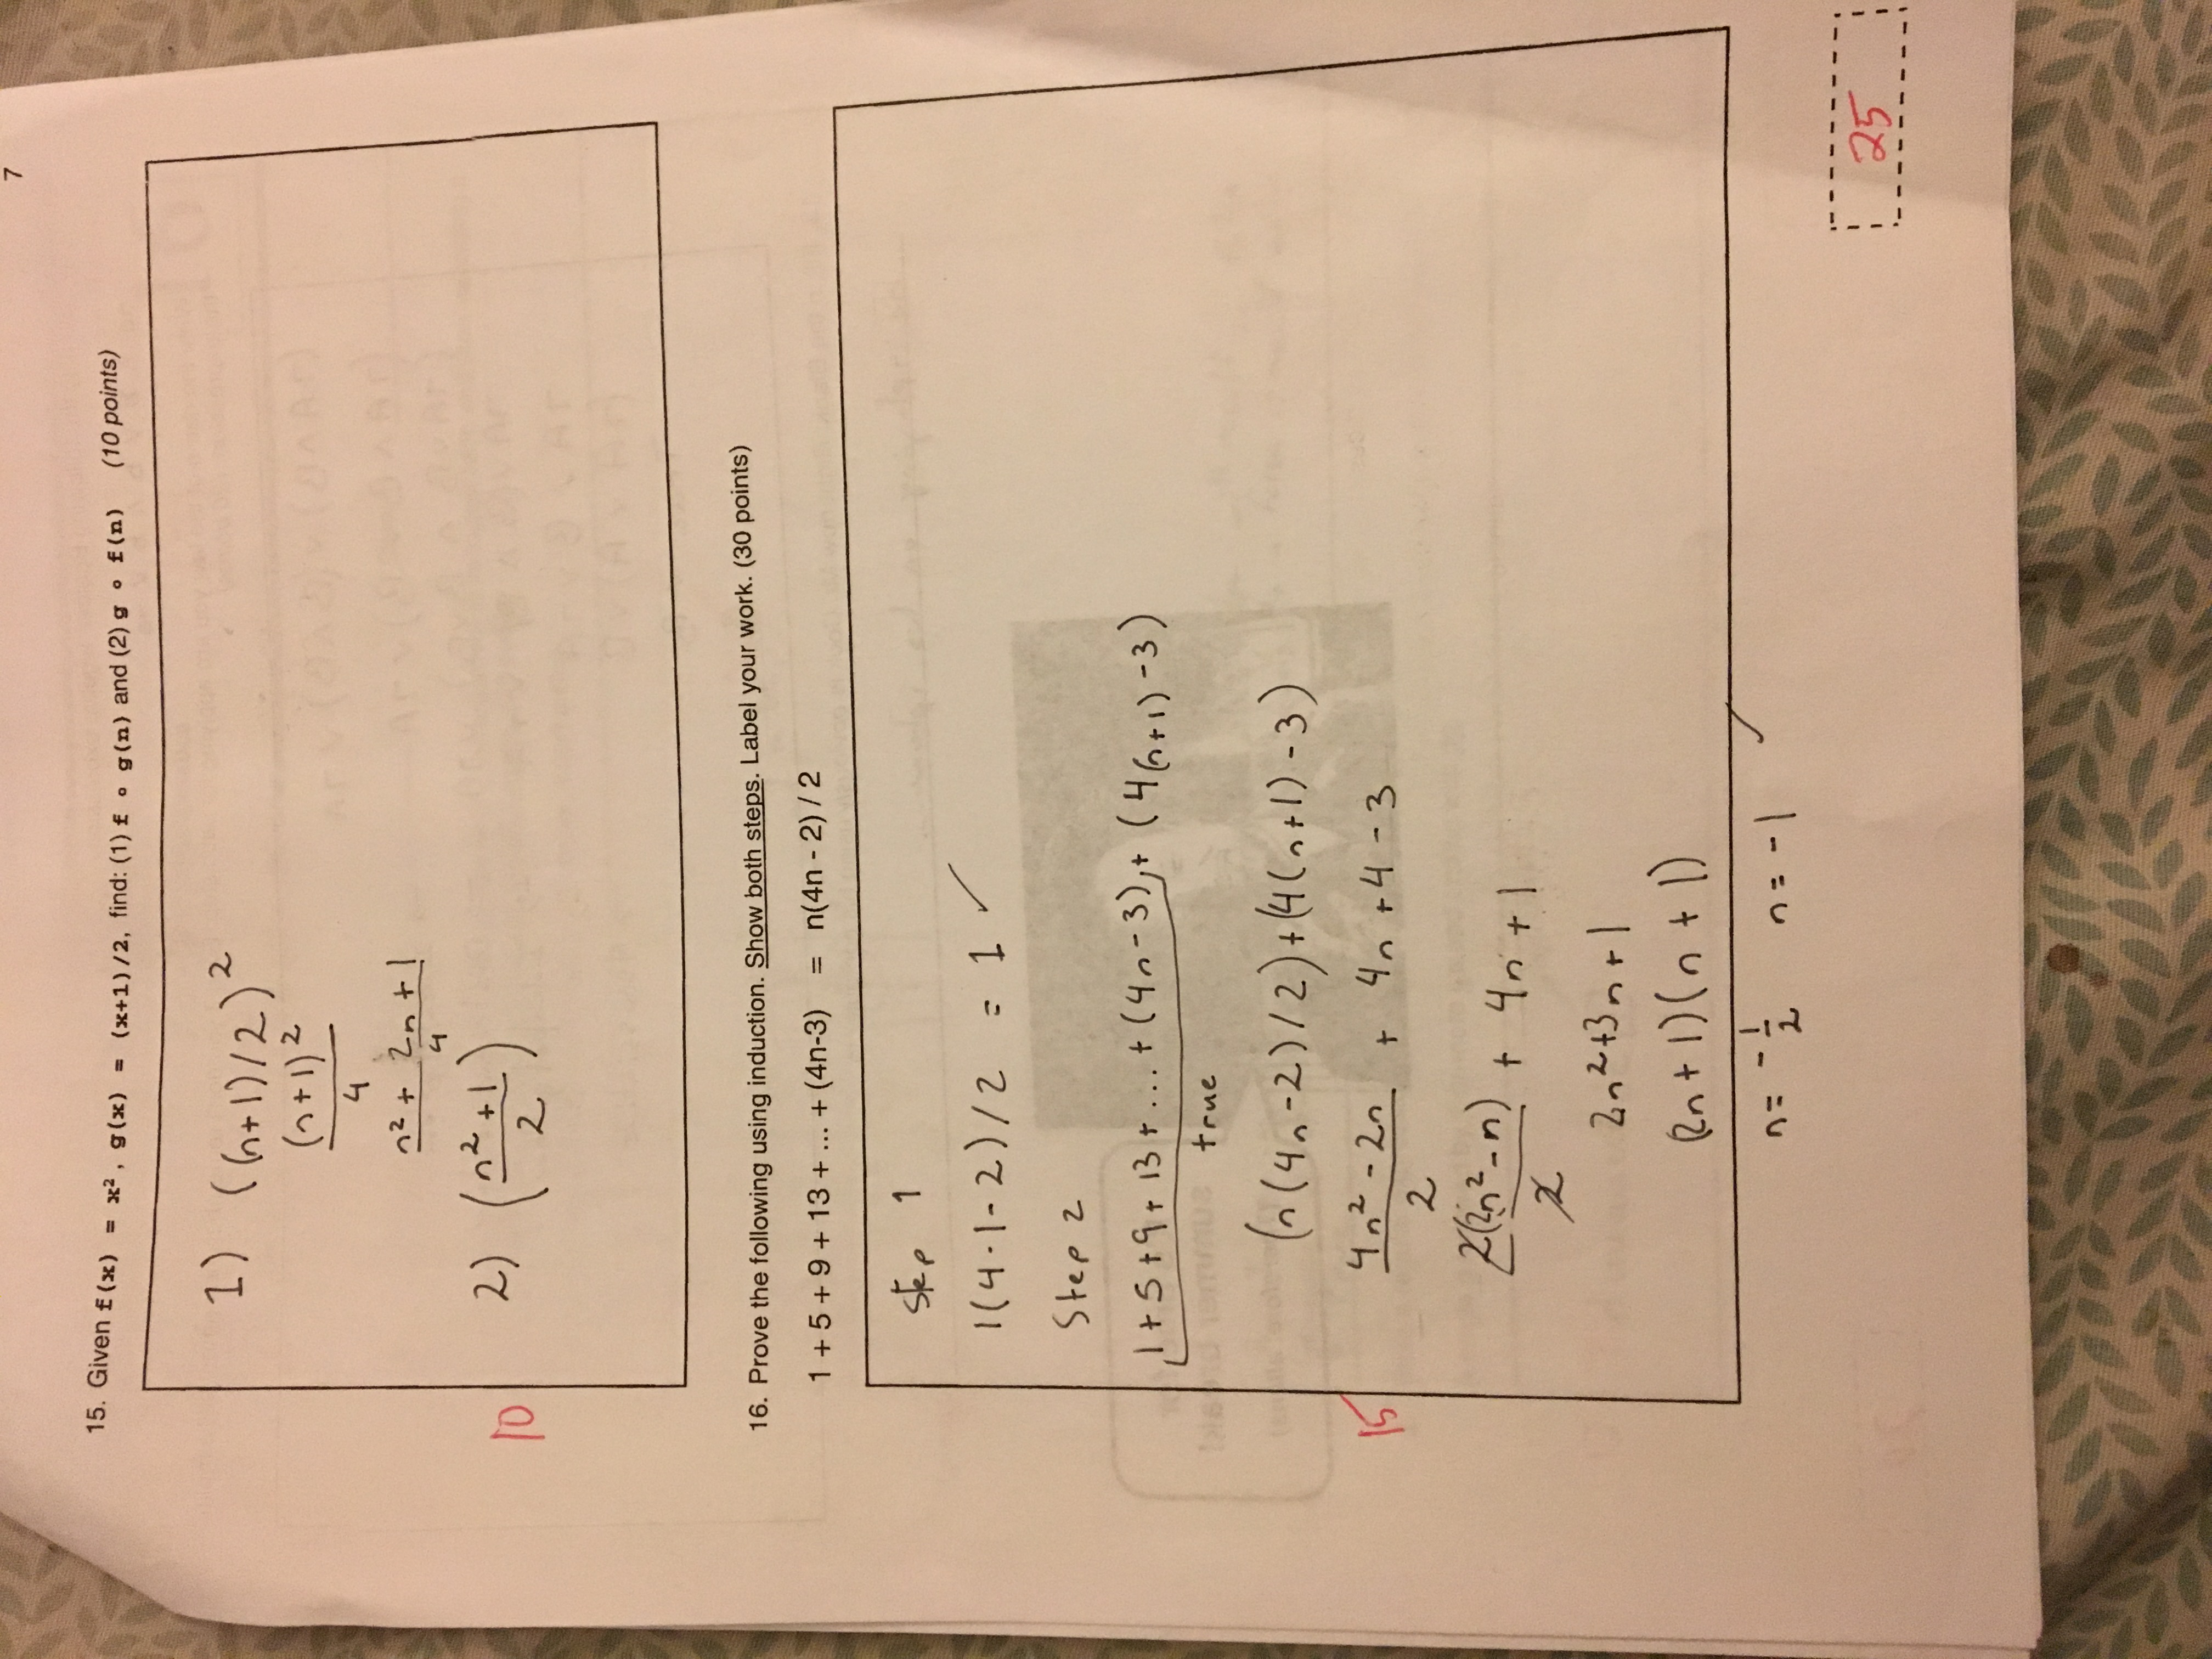 7
15. Given f(x) = x², g(x) = (x+1)/2, find: (1) f ∘ g(n) and (2) g ∘ f(n) (10 points)
1) ((n+1)/2)²
(n+1)²
4
n² + 2n + 1
4
2) (n² + 1
2)
10
16. Prove the following using induction. Show both steps. Label your work. (30 points)
1 + 5 + 9 + 13 + ... + (4n-3) = n(4n - 2) / 2
Step 1
1(4·1-2)/2 = 1 ✓
Step 2
1+5+9+13+...+(4n-3)+(4(n+1)-3)
true
(n(4n-2)/2)+(4(n+1)-3)
4n² - 2n + 4n + 4 - 3
2
15
2(2n²-n) + 4n + 1
2
2n²+3n+1
(2n+1)(n+1)
n = -1/2 n = -1 ✓
25